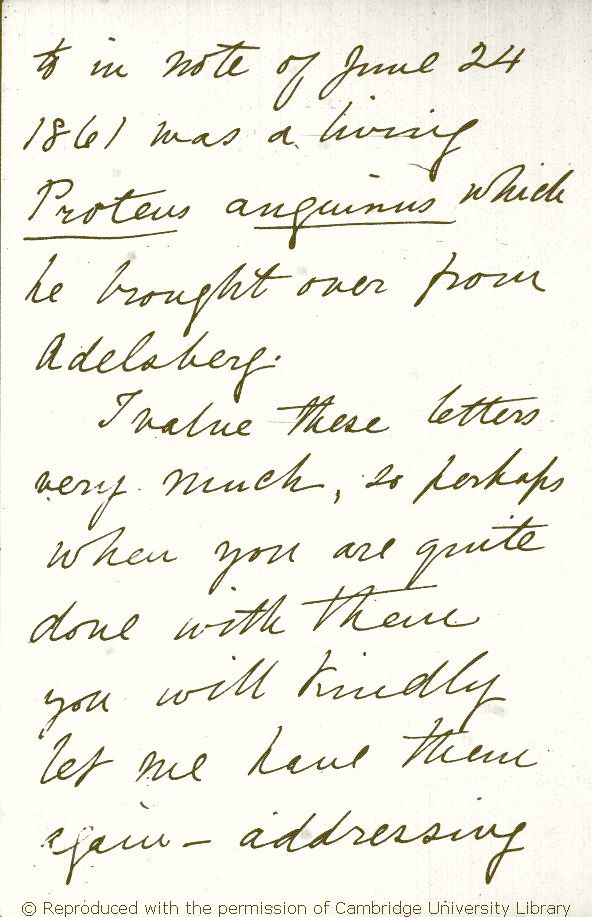 to in note of June 24
1861 was a living
Proteus anguinus which
he brought over from
Adelsberg.
I value these letters
very much, so perhaps
when you are quite
done with them
you will kindly
let me have them
again – addressing
© Reproduced with the permission of Cambridge University Library